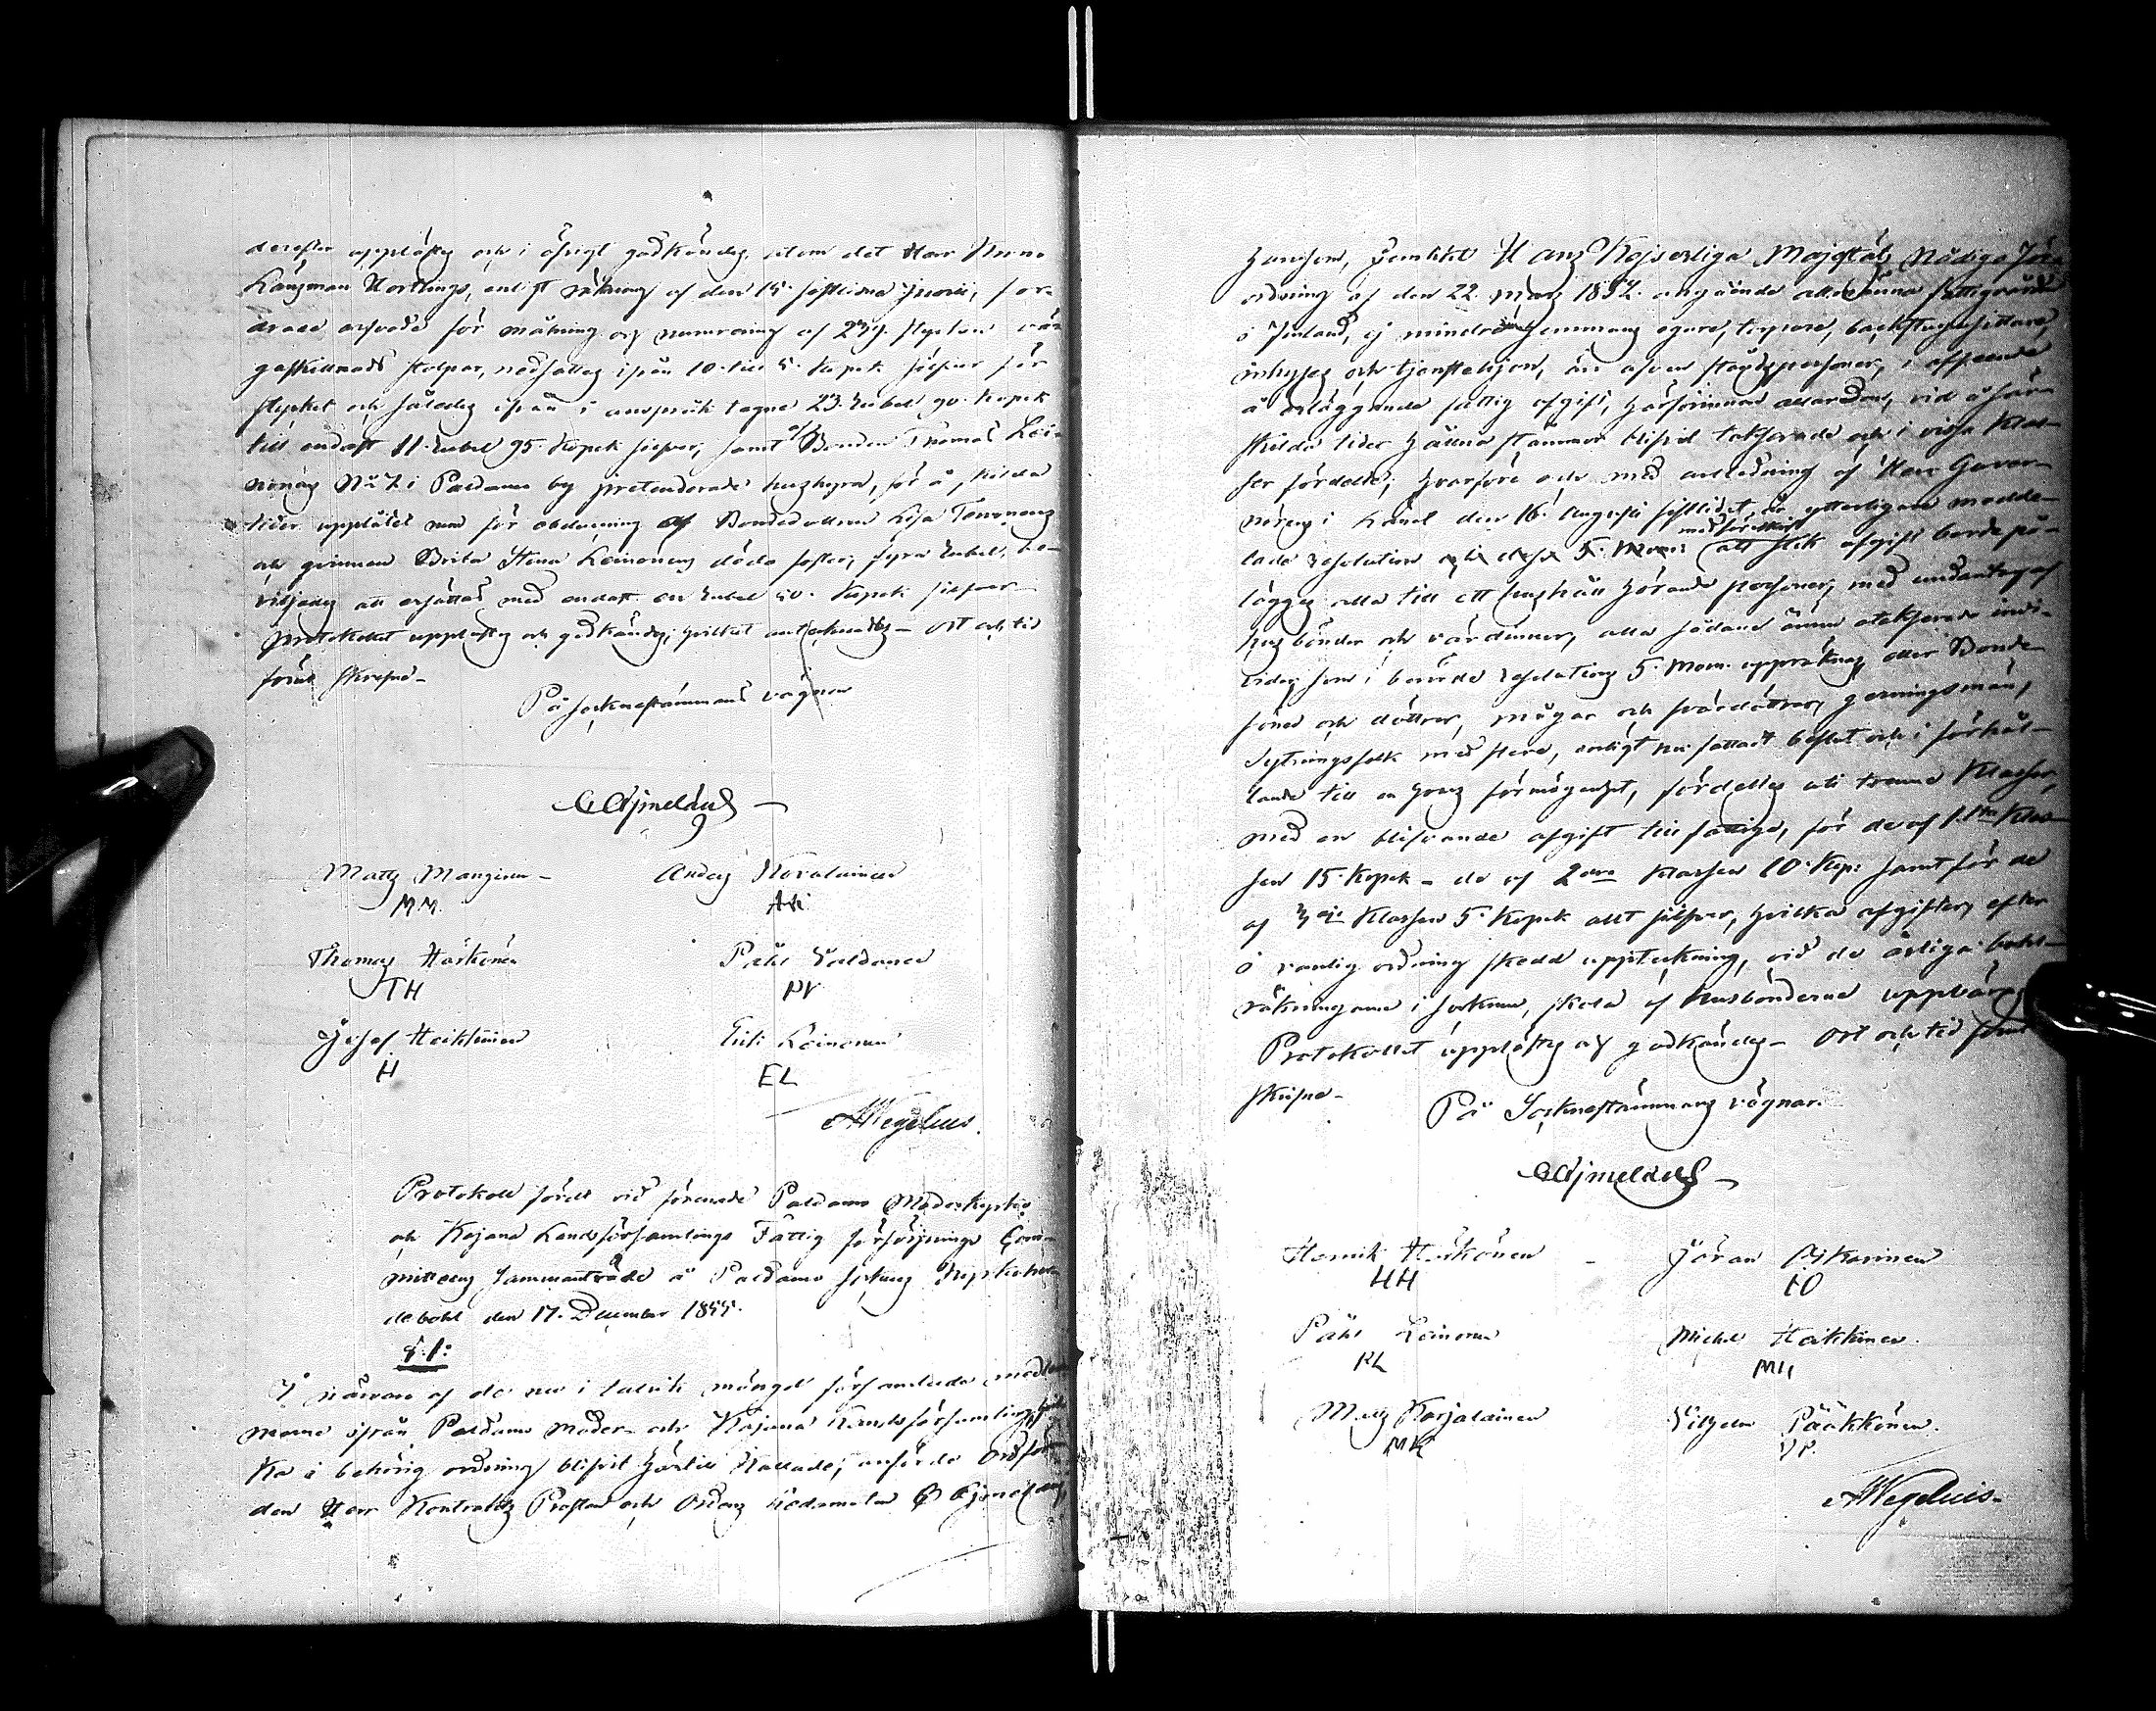 derefter upplästes och i öfrigt godkändes, utom det Herr Krono
Länzman Hortlings, enligt räkning af den 15. sistlidne Junii, for-
drade arfvode för målning och numrering af 239. stycken väg
gaskillnads stolpar, nedsattes ifrån 10. till 5. Kopek silfver för
stycket och således ifrån i anspråk tagne 23. Rubel 90. Kopek
till endast 11. Rubel 95. Kopek silfver; samt Bonden Thomas Lei-
nonens No 7. i Paldamo by pretenderade hushyra, för å skilda
tider upplåtet rum för obducering af Bondedottren Lisa
och qvinnan Brita Stina Leinonens döda foster, fyra Rubel, be-
viljades att ersättas med endast en Rubel 50. Kopek silfver
Protokollet upplästes och godkändes; hvilket antecknades – Ort och tid
förut skrefne –
På socknestämmans vägnar
C Ajmelæus –
Matts Manginen – Anders Kovalainen
MM. AK
Thomas Härkönen Påhl Valdanen
TH PV
Josef Heikkinen Erik Leinonen
H EL
AWegelius.
Protokoll fördt vid förenade Paldamo Moderkyrko
och Kajana Landsförsamlings Fattig försörjnings Com-
mitteens sammanträde å Paldamo sockens Kyrkoher-
debohl den 17. December 1855.
§. 1:
I närvaro af de nu i talrik mängd församlade medlem
marne ifrån Paldamo moder- och Kajana Landsförsamling, hvil
ka i behörig ordning blifvit härtill kallade; anförde Ordföran
den Herr Kontrakts Prosten och Ordens Ledamoten C Ajmelæus,
hurusom, jemlikt Hans Kejserliga Majestäts Nådiga För-
ordning af den 22. Mars 1852. angående allmänna fattigvården
i Finland, ej mindre hemmans egare, torpare, backstugusittare,
inhyses och tjenstehjon, än äfven ståndspersoner, i afseende
å erläggande fattig afgift, härförinnan allaredan, vid å sär-
skilda tider hållna stämmor blifvit taxerade och i vissa Klas-
ser fördelta; hvarföre och med anledning af Herr Guver-
nörens i Länet den 16. Augusti sistlidet, nu ytterligare medde-
lade resolution och dess 5. Mom: med föreskrift att slik afgift borde på-
läggas alla till ett hushåll hörande personer, med undantag af
husbönder och värdinnor, alla sådane ännu otaxerade indi-
vider, som i berörde resolutions 5. Mom. uppräknas, eller Bonde-
söner och döttrar, mågar och svärdöttrar, gerningsmän,
Sytningsfolk med flere, enligt nu fattadt beslut och i förhål-
lande till en hvars förmögenhet, fördeltes uti trenne Klasser,
med en blifvande afgift till fattige, för de af 1sta Klas-
sen 15. Kopek – de af 2dra Klassen 10. Kop: samt för de
af 3dje Klassen 5. Kopek allt silfver, hvilka afgifter, efter
i vanlig ordning skedd uppteckning, vid de årliga bohl-
räkningarne i socknen, skola af husbönderne uppbäras
Protokollet upplästes och godkändes – Ort och tid förut
skrifne –
På Socknestämmans vägnar.
C Ajmelæus –
Henrik Härkönen – Jöran Oikarinen
HH IO
Påhl Leinonen Michel Heikkinen.
PL MH
Matts Karjalainen Vilhelm Pääkkönen.
MK VP.
AWegelius –